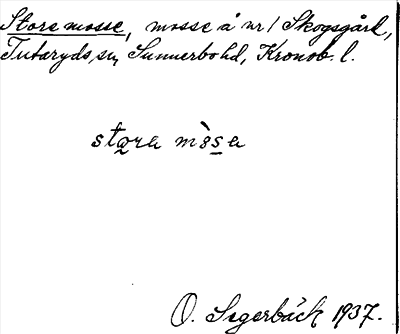 Store mosse, mosse å nr 1 Skogsgård,
Tutaryds sn, Sunnerbo hd, Kronob. l.
stora mòsa
O. Segerbäck 1937.